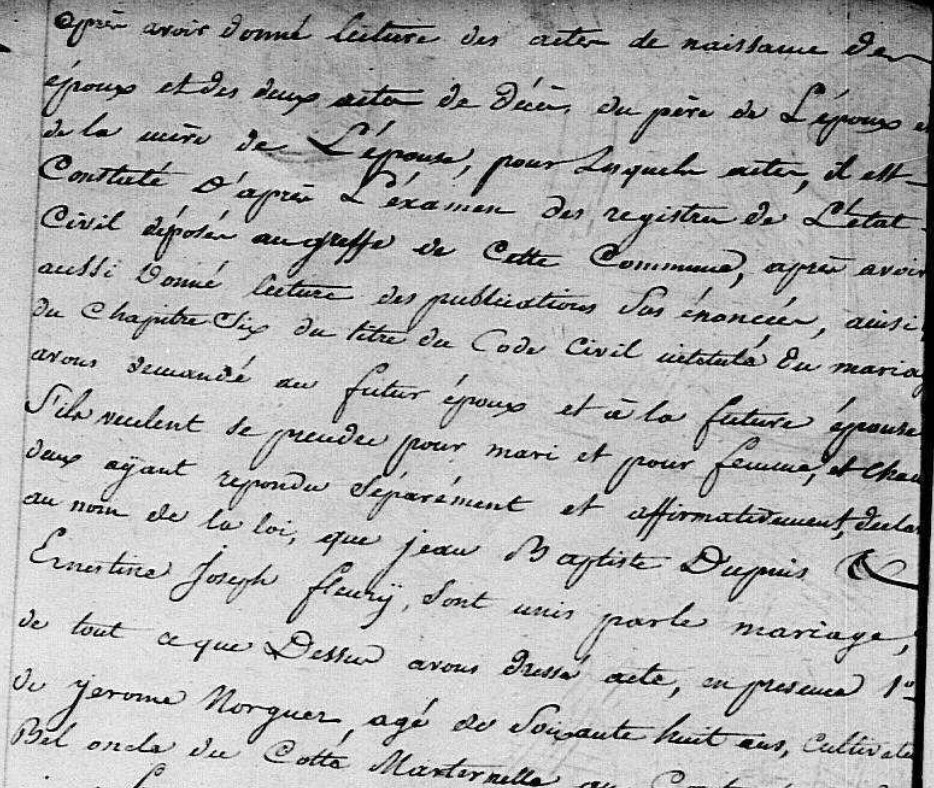 après avoir donné lecture des actes de naissance des
époux et des deux actes de décès, du père de L'époux et
de la mère de L'épouse, pour lesquels actes, il est
Constaté D'après L'éxamen des registres de L'état
Civil déposés au greffe de Cette Commune, après avoir
aussi Donné lecture des publications sus énoncées, ainsi
du Chapitre Six du titre du Code Civil intitulé du maria
avons demandé au futur époux et à la future épouse
S'ils veulent se prendre pour mari et pour femme, et chacu
deux aÿant repondu séparément et affirmativement, décla
au nom de la loi, que jean Baptiste Dupuis &
Ernestine Joseph fleurÿ, sont unis par le mariage,
de tout ce que Dessus avons dressé acte, en presence 1°
de jerome Norguez agé de Soixante huit ans, Cultivate
Bel oncle du Cotté Marternelle